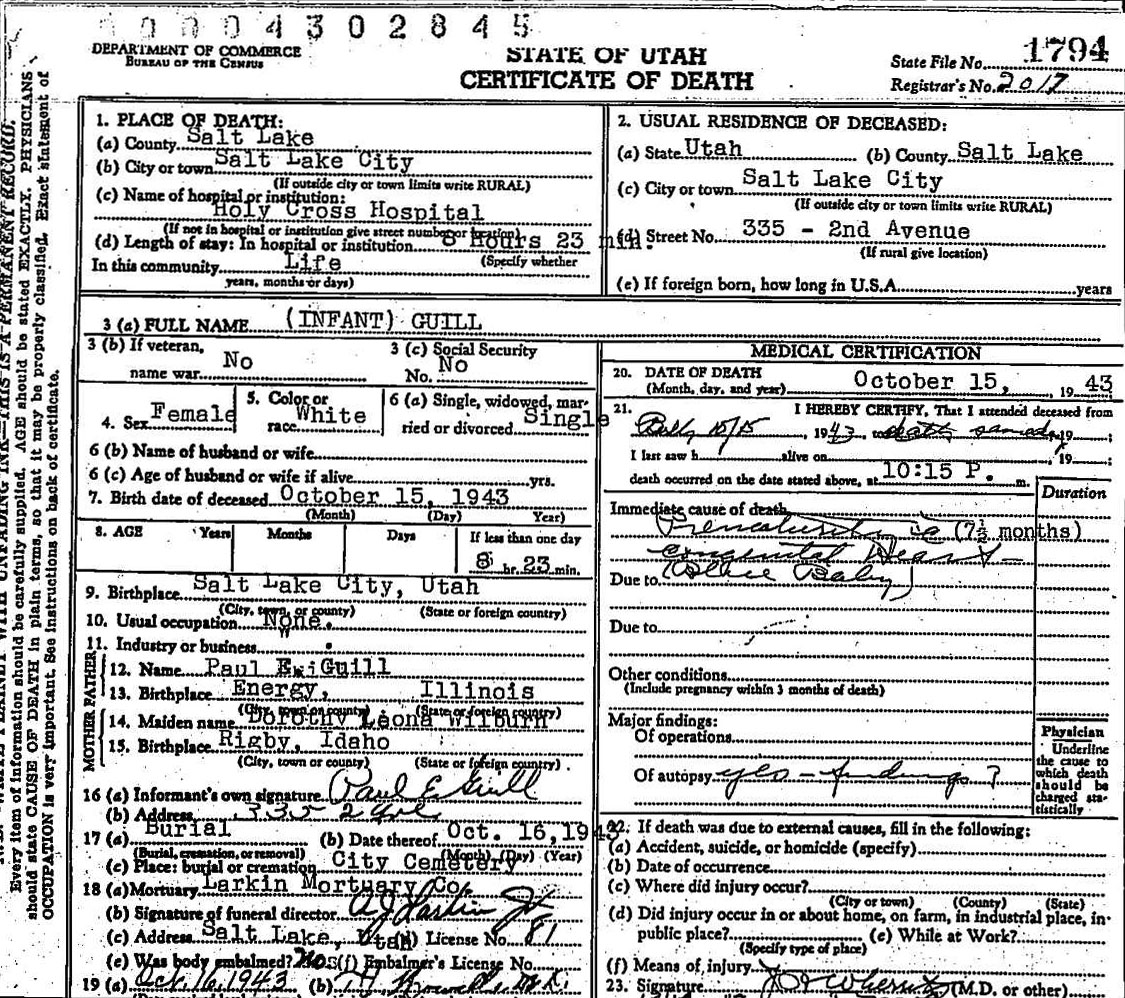 0 0 0 0 4 3 0 2 8 4 5
DEPARTMENT OF COMMERCE
BUREAU OF THE CENSUS
STATE OF UTAH
CERTIFICATE OF DEATH
State File No. 1794
Registrar's No. 2017
1. PLACE OF DEATH:
(a) County Salt Lake
(b) City or town Salt Lake City
(If outside city or town limits write RURAL)
(c) Name of hospital or institution:
Holy Cross Hospital
(If not in hospital or institution give street number or location)
(d) Length of stay: In hospital or institution 8 Hours 23 min.
(Specify whether
In this community Life
years, months or days)
2. USUAL RESIDENCE OF DECEASED:
(a) State Utah (b) County Salt Lake
(c) City or town Salt Lake City
(If outside city or town limits write RURAL)
(d) Street No. 335 - 2nd Avenue
(If rural give location)
(e) If foreign born, how long in U.S.A. years
3 (a) FULL NAME (INFANT) GUILL
3 (b) If veteran, name war No
3 (c) Social Security No. No
4. Sex Female
5. Color or race White
6 (a) Single, widowed, married or divorced Single
6 (b) Name of husband or wife
6 (c) Age of husband or wife if alive yrs.
7. Birth date of deceased October 15, 1943
(Month) (Day) Year)
8. AGE Years Months Days If less than one day
8 hr. 23 min.
9. Birthplace Salt Lake City, Utah
(City, town, or county) (State or foreign country)
10. Usual occupation None.
11. Industry or business
FATHER
12. Name Paul E. Guill
13. Birthplace Energy, Illinois
(City, town or county) (State or foreign country)
MOTHER
14. Maiden name Dorothy Leona Wilburn
15. Birthplace Rigby, Idaho
(City, town or county) (State or foreign country)
16 (a) Informant's own signature Paul E. Guill
(b) Address 335 2 ave
17 (a) Burial (b) Date thereof Oct. 16, 1943
(Burial, cremation, or removal) (Month) (Day) (Year)
(c) Place: burial or cremation City Cemetery
18 (a) Mortuary Larkin Mortuary Co.
(b) Signature of funeral director
(c) Address Salt Lake, Utah (d) License No. 81
(e) Was body embalmed? (f) Embalmer's License No.
19 (a) Oct. 16, 1943 (b)
MEDICAL CERTIFICATION
20. DATE OF DEATH
(Month, day, and year) October 15, 19 43
21. I HEREBY CERTIFY, That I attended deceased from
10/15, 1943, to death same day 19 ;
I last saw h alive on , 19 ;
death occurred on the date stated above, at 10:15 P. m.
Duration
Immediate cause of death
Prematurity (7½ months)
congenital Heart
Due to (Blue Baby)
Due to
Other conditions
(Include pregnancy within 3 months of death)
Major findings:
Of operations
Of autopsy yes - findings ?
Physician
Underline the cause to which death should be charged statistically
22. If death was due to external causes, fill in the following:
(a) Accident, suicide, or homicide (specify)
(b) Date of occurrence
(c) Where did injury occur?
(City or town) (County) (State)
(d) Did injury occur in or about home, on farm, in industrial place, in public place? (e) While at Work?
(Specify type of place)
(f) Means of injury
23. Signature (M.D. or other)
Every item of information should be carefully supplied. AGE should be stated EXACTLY. PHYSICIANS
should state CAUSE OF DEATH in plain terms, so that it may be properly classified. Exact statement of
OCCUPATION is very important. See instructions on back of certificate.